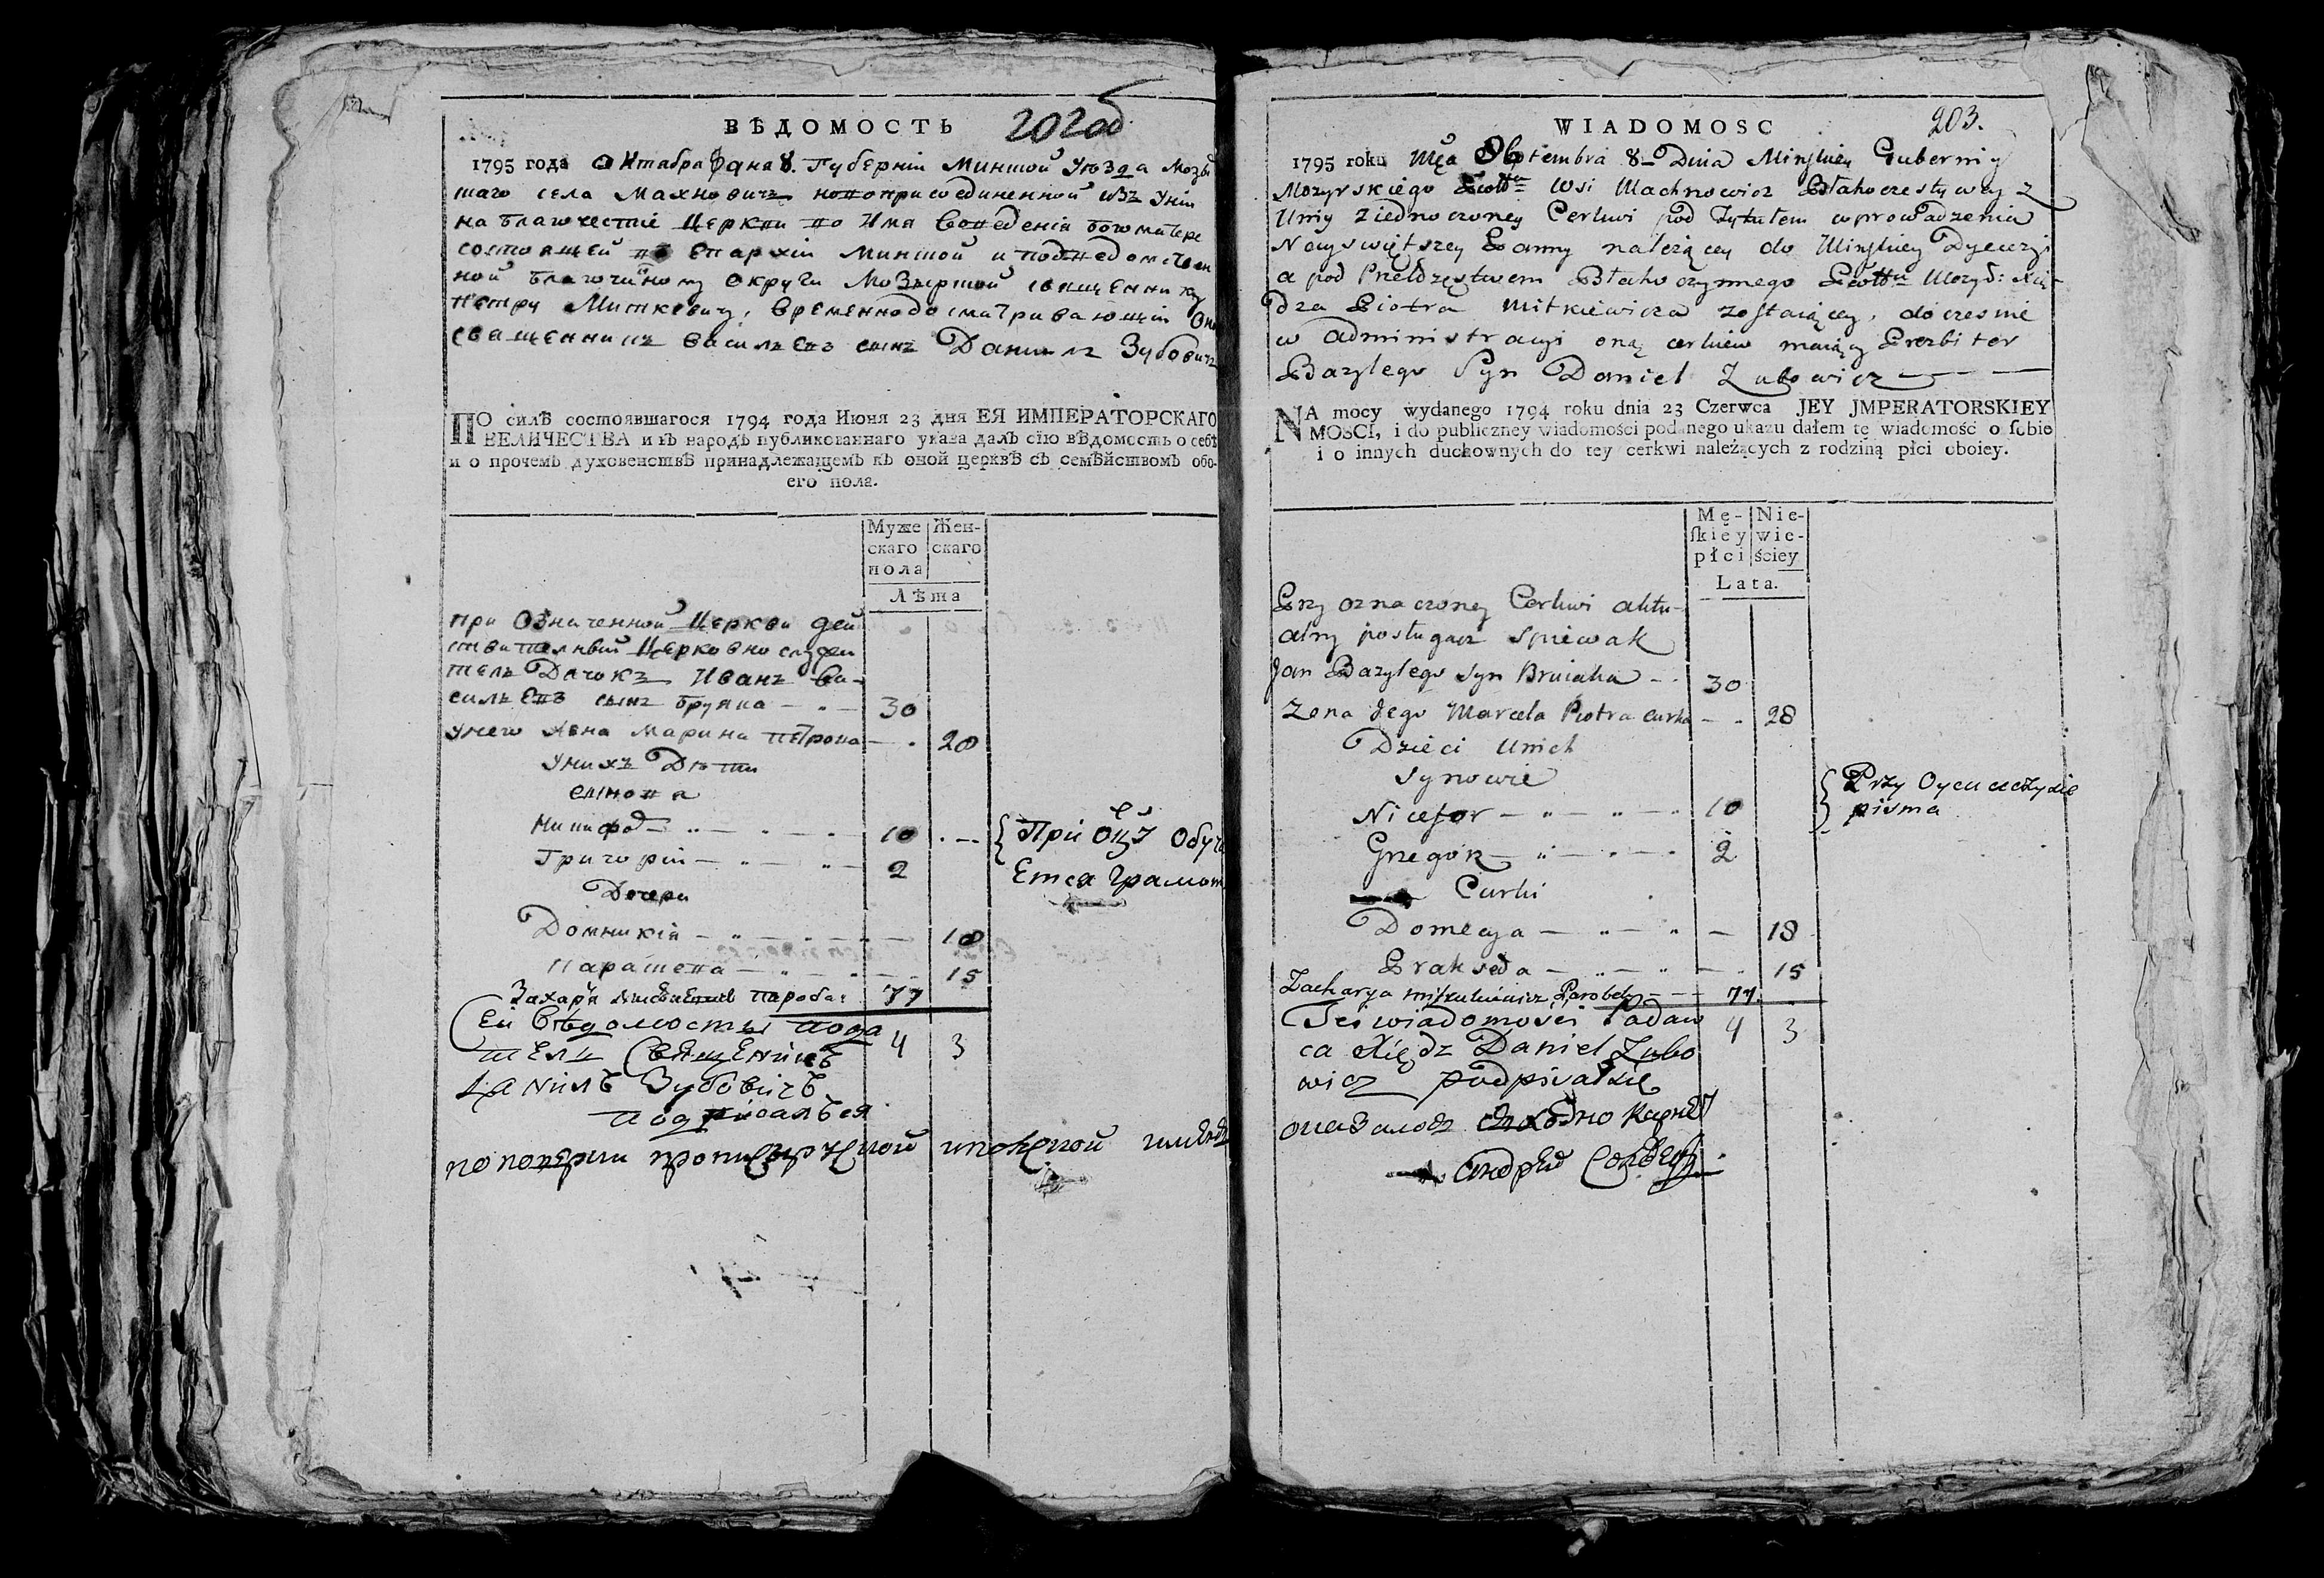 ВѢДОМОСТЬ 202об
1795 года Октабра дна 8. Губерніи Минской Уѣзда Мозы
скаго села Махновичъ новоприсоединенной изъ Уніи
на благочестіе Церкви во Имя Воведенія богоматере
состоящей во Епархіи Минской и подведомствен
ной благочинному Округи Мозырской священнику
Петру Миткевичу, временнодосматривающій Оно
священникъ Васильевъ сынъ Данилъ Зубовичъ
ПО силѣ состоявшагося 1794 года Июня 23 дня ЕЯ ИМПЕРАТОРСКАГО
ВЕЛИЧЕСТВА и въ народъ публикованнаго указа далъ сію вѣдомость о себѣ
и о прочемъ духовенствѣ принадлежащемъ къ оной церквѣ съ семѣйствомъ обо-
его пола.
Муже скаго пола
Жен- скаго
Лѣта
при Означенной Церкви дей
ствителный Церковнослужи
тель Дячокъ Иванъ Ва-
сильевъ сынъ Бруяка 30
Унего Жена Марина Петрова 28
Унихъ Дѣти
сынова
Никифор 10 При оцу Обуча
Григорій 2 Ется Грамот
Дочери
Домникія 18
Парасцева 15
Захарія паробак 77
Сей Вѣдомосты пода 4 3
тель Священикъ
Данилъ Зубовичъ
подписалъся
WIADOMOSC 203.
1795 roku Mca Octembra 8 Dnia Minskiey Gubernij
Mozyrskiego Pwttu Wsi Machnowicz Błahoczestywey z
Unij ziednoczoney Cerkwi pod Tytułem wprowadzenia
Nayswiętszey Panny należącey do Minskiey Dyecezyi
a pod Prełdzęstwem Błahoczynnego Pwttu Mozyr: Xię-
dza Piotra Mitkiewicza zostaiącey, doczesnie
w administracyi oną cerkiew maiący Prezbiter
Bazylego Syn Daniel Zubowicz
NA mocy wydanego 1794 roku dnia 23 Czerwca JEY JMPERATORSKIEY
MOSCI, i do publiczney wiadomości podanego ukazu dałem tę wiadomość o sobie
i o innych duchownych do tey cerkwi należących z rodziną płci oboiey.
Mę- skiey płci
Nie- wie- ściey
Lata.
Przy oznaczoney Cerkwi aktu-
alny posługacz spiewak
Jan Bazylego Syn Bruiaka 30
Zona Jego Marcela Piotra curka 28
Dzieci Unich
Synowie
Nicefor 10 Przy Oycu uczy sie
Grzegorz 2 pisma
Curki
Domecya 18
Prakseda 15
Zacharya Parobek 77
Teÿ wiadomości Podaw 4 3
ca Xiędz Daniel Zubo
wicz podpisał się